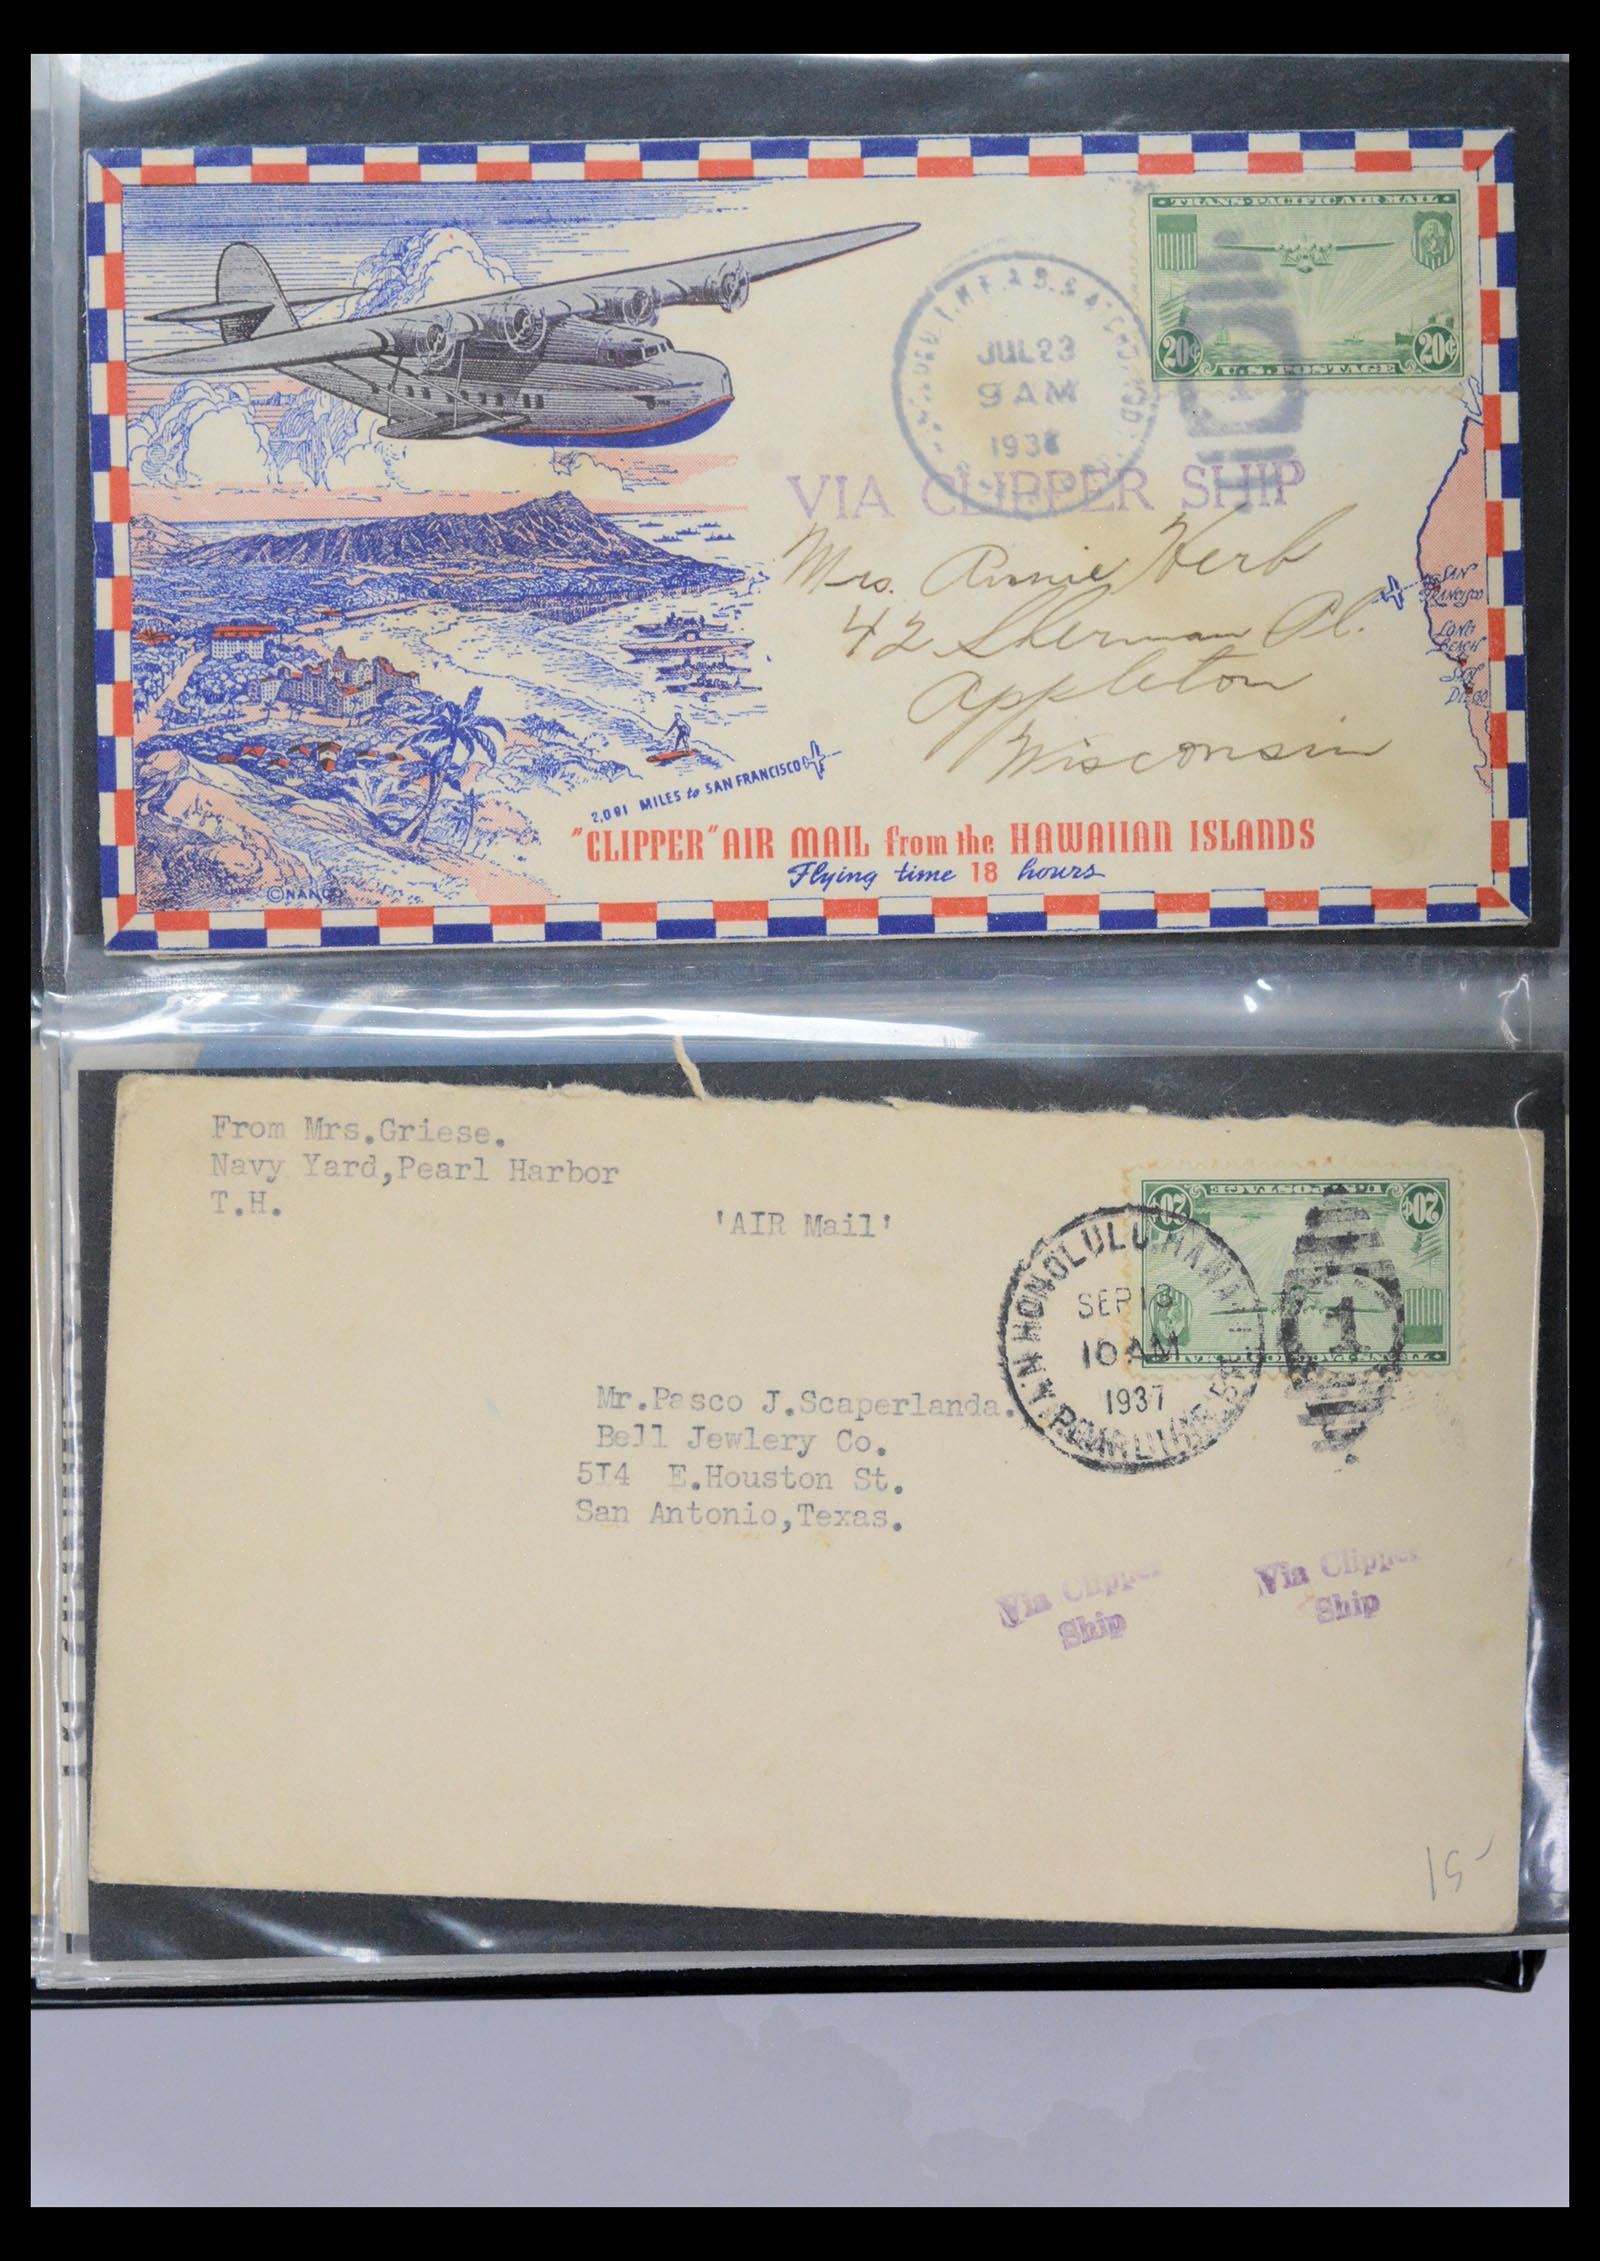 TRANS-PACIFIC AIR MAIL
20¢ 20¢
U.S. POSTAGE
JUL 23
9 AM
VIA CLIPPER SHIP
Mrs. Annie Herb
42 Sherman Pl.
Appleton
Wisconsin
SAN
FRANCISCO
LONG
BEACH
SAN
DIEGO
2,091 MILES to SAN FRANCISCO
"CLIPPER" AIR MAIL from the HAWAIIAN ISLANDS
Flying time 18 hours
From Mrs.Griese.
Navy Yard,Pearl Harbor
T.H.
'AIR Mail'
U.S. POSTAGE
20¢ 20¢
TRANS-PACIFIC AIR MAIL
HONOLULU, HAWAII
SEP 13
10 AM
1937
1
Mr.Pasco J.Scaperlanda.
Bell Jewlery Co.
5I4 E.Houston St.
San Antonio,Texas.
Via Clipper
Ship
Via Clipper
Ship
15-